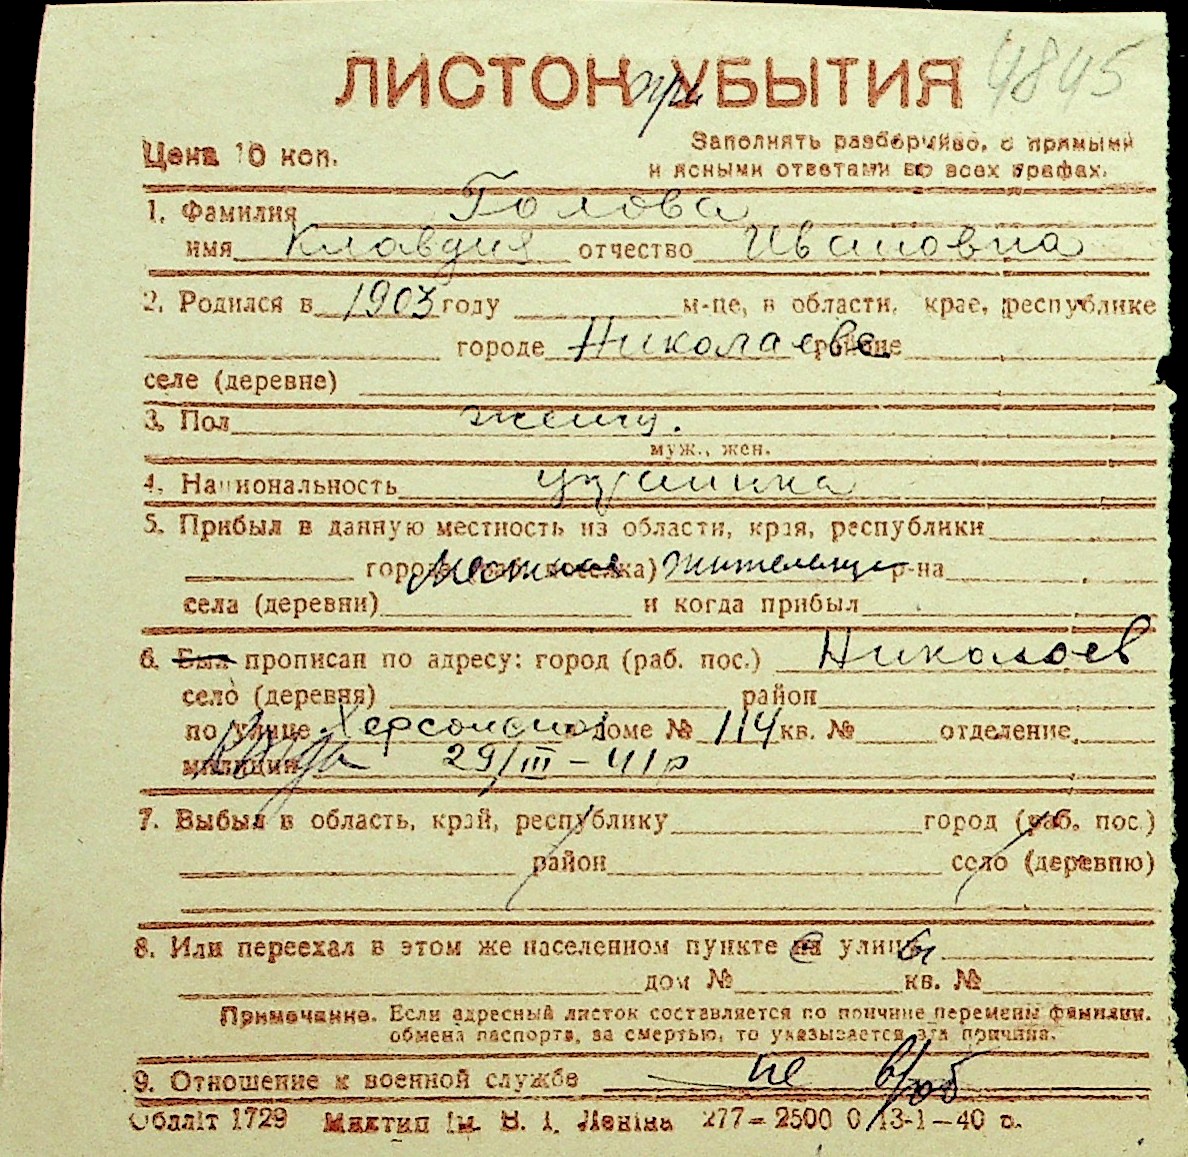 ЛИСТОК при УБЫТИЯ 4845
Цена 10 коп.
Заполнять разборчиво, с прямыми
и ясными ответами во всех графах.
1. Фамилия Голова
имя Клавдия отчество Ивановна
2. Родился в 1903 году м-це, в области, крае, республике
городе Николаеве районе
селе (деревне)
3. Пол женщ.
муж., жен.
4. Национальность украинка
5. Прибыл в данную местность из области, края, республики
города (раб. поселка) Местная жительница р-на
села (деревни) и когда прибыл
6. Был прописан по адресу: город (раб. пос.) Николаев
село (деревня) район
по улице Херсонской доме № 114 кв. № отделение
милиции 29/III – 41 г
7. Выбыл в область, край, республику город (раб. пос.)
район село (деревню)
8. Или переехал в этом же населенном пункте с улицы
дом № кв. №
Примечание. Если адресный листок составляется по причине перемены фамилии,
обмена паспорта, за смертью, то указывается эта причина.
9. Отношение к военной службе не в/об
Облліт 1729 Миктип ім. В. І. Леніна 277–2500 0 13-1–40 р.